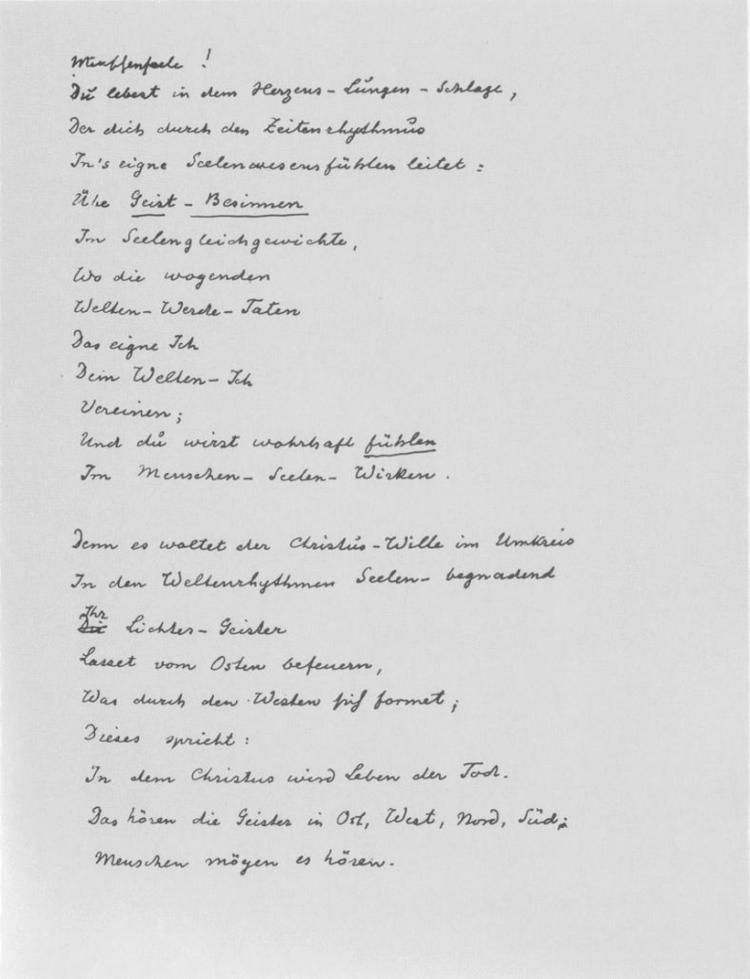 Menschenseele!
Du lebest in dem Herzens-Lungen-Schlage,
Der dich durch den Zeitenrhythmus
In's eigne Seelenwesensfühlen leitet:
Übe Geist-Besinnen
Im Seelengleichgewichte,
Wo die wogenden
Welten-Werde-Taten
Das eigne Ich
Dem Welten-Ich
Vereinen;
Und du wirst wahrhaft fühlen
Im Menschen-Seelen-Wirken.
Denn es waltet der Christus-Wille im Umkreis
In den Weltenrhythmen Seelen-begnadend
Ihr
Die Lichtes-Geister
Lasset vom Osten befeuern,
Was durch den Westen sich formet;
Dieses spricht:
In dem Christus wird Leben der Tod.
Das hören die Geister in Ost, West, Nord, Süd;
Menschen mögen es hören.